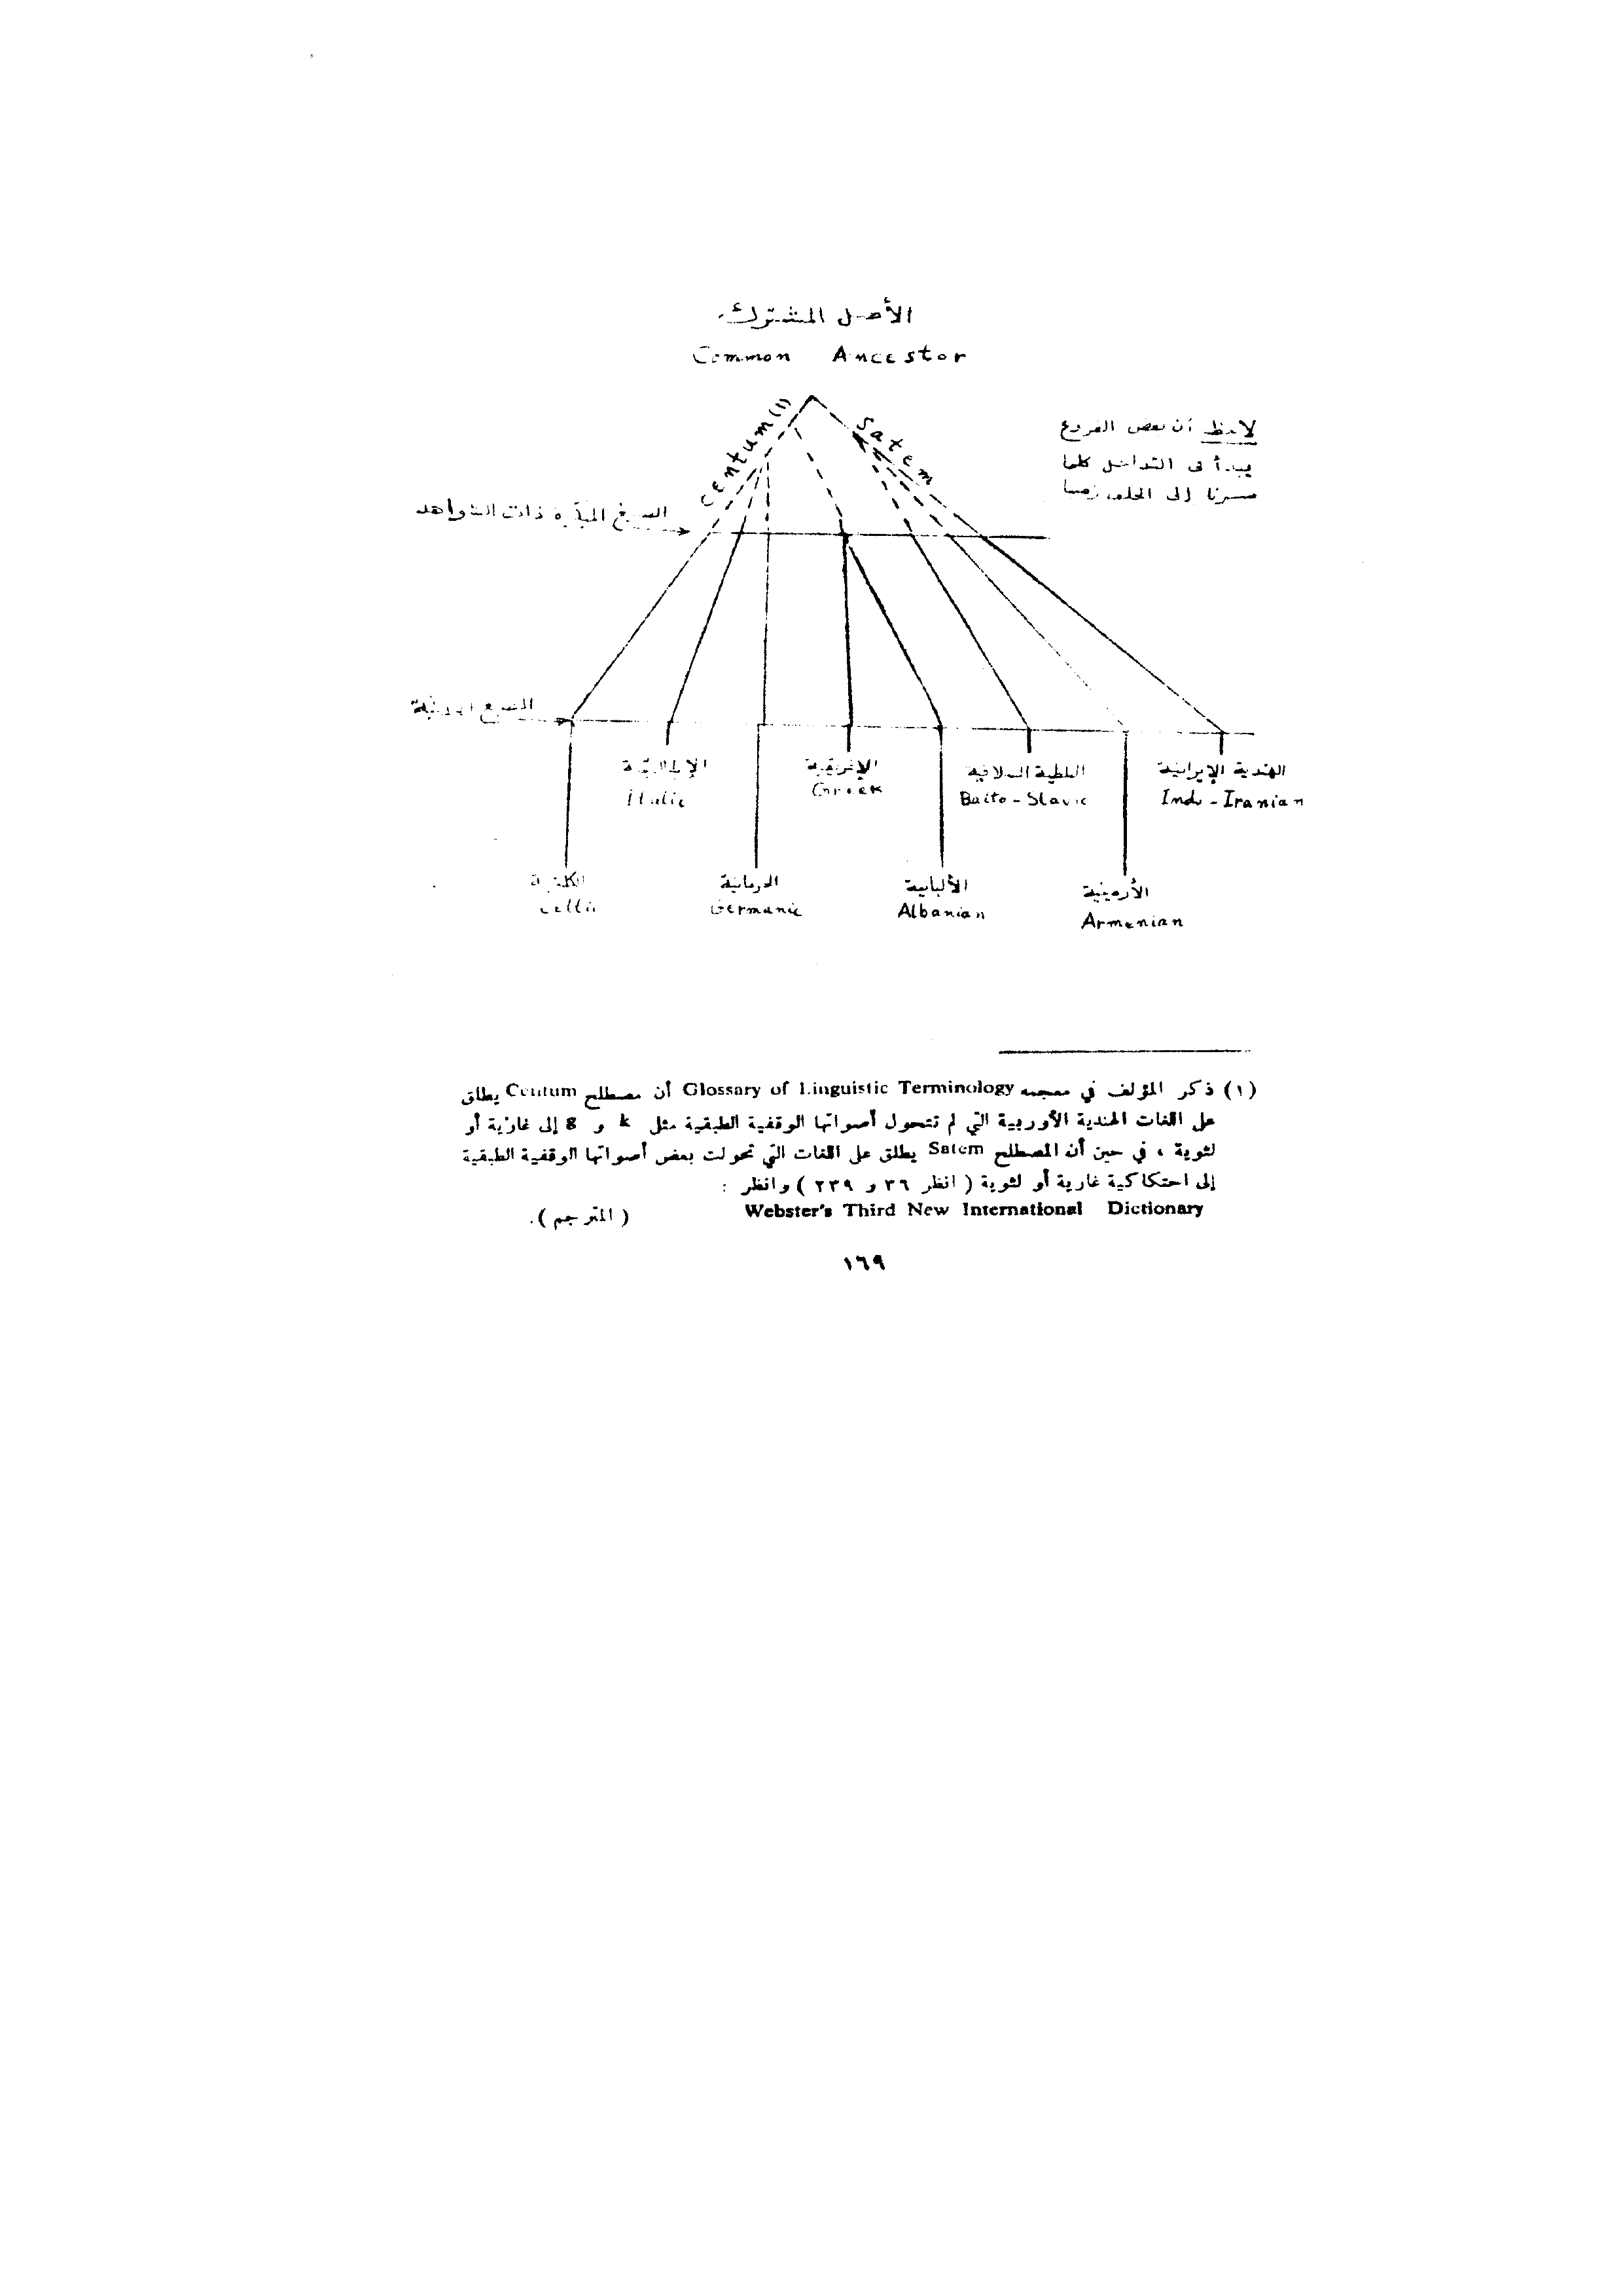 الأصل المشترك
Common Ancestor
centum (١)
Satem
لاحظ أن بعض الفروع
يبدأ فى التداخل كلما
سرنا إلى الخلف زمنيا
الصيغ المبكرة ذات الشواهد
الصيغ الحديثة
الإيطالية
Italic
الإغريقية
Greek
البلطية السلافية
Balto - Slavic
الهندية الإيرانية
Indo - Iranian
الكلتية
Celtic
الجرمانية
Germanic
الألبانية
Albanian
الأرمينية
Armenian
(١) ذكر المؤلف في معجمه Glossary of Linguistic Terminology أن مصطلح Centum يطلق
على اللغات الهندية الأوربية التي لم تتحول أصواتها الوقفية الطبقية مثل k و g إلى غارية أو
لثوية ، في حين أن المصطلح Satem يطلق على اللغات التي تحولت بعض أصواتها الوقفية الطبقية
إلى احتكاكية غارية أو لثوية ( انظر ٣٦ و ٢٣٩ ) وانظر :
Webster's Third New International Dictionary ( المترجم ).
١٦٩